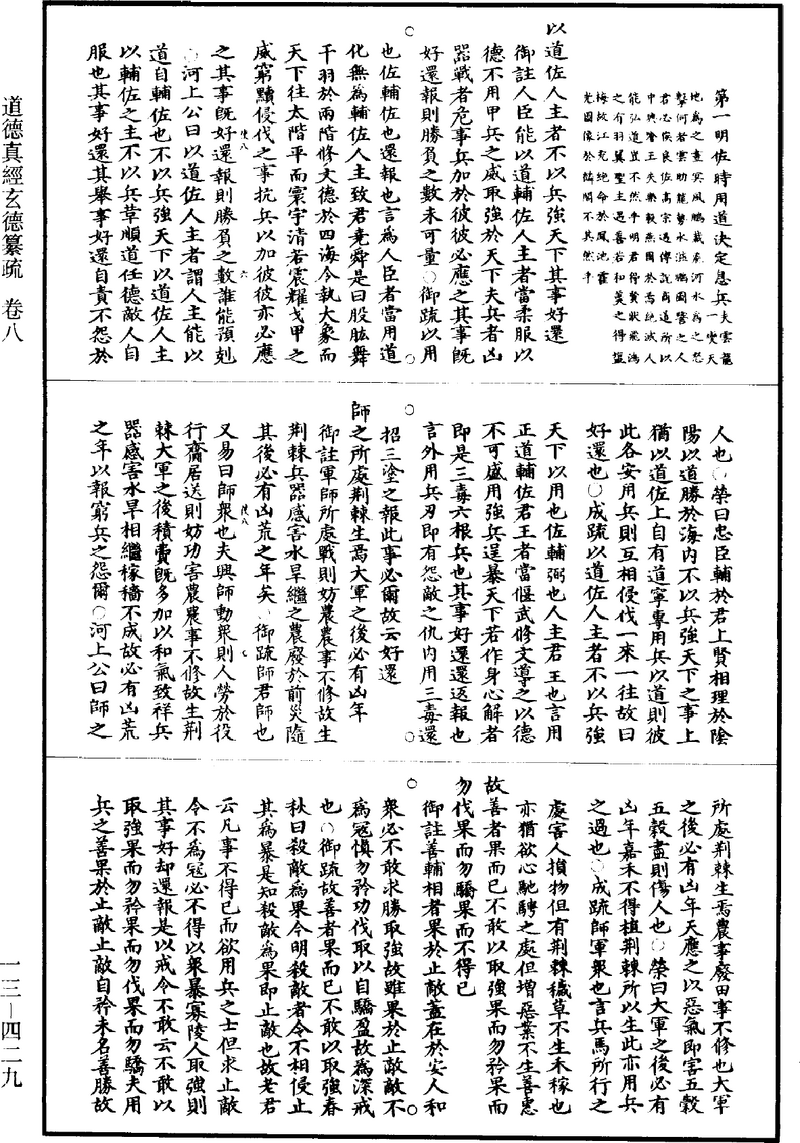 道德真經玄德纂疏　卷八
一三—四二九
第一明佐時用道決定息兵夫雲龍
以道佐人主者不以兵強天下其事好還
御註人臣能以道輔佐人主者當柔服以
德不用甲兵之威取強於天下夫兵者凶
器戰者危事兵加於彼彼必應之其事既
好還報則勝負之數未可量○御疏以用
也佐輔佐也還報也言為人臣者當用道
化無為輔佐人主致君堯舜是曰股肱舞
干羽於兩階修文德於四海今執大象而
天下往太階平而寰宇清若震耀戈甲之
威窮黷侵伐之事抗兵以加彼彼亦必應
之其事既好還報則勝負之數誰能預剋
○河上公曰以道佐人主者謂人主能以
道自輔佐也不以兵強天下以道佐人主
以輔佐之主不以兵革順道任德敵人自
服也其事好還其舉事好還自責不怨於
人也○榮曰忠臣輔於君上賢相理於陰
陽以道勝於海內不以兵強天下之事上
猶以道佐上自有道寧專用兵以道則彼
此各安用兵則互相侵伐一來一往故曰
好還也○成疏以道佐人主者不以兵強
天下以用也佐輔弼也人主君王也言用
正道輔佐君王者當偃武修文導之以德
不可盛用強兵逞暴天下若作身心解者
即是三毒六根兵也其事好還還返報也
言外用兵刃即有怨敵之仇內用三毒還
招三塗之報此事必爾故云好還
師之所處荊棘生焉大軍之後必有凶年
御註軍師所處戰則妨農農事不修故生
荊棘兵器感害水旱繼之農廢於前災隨
其後必有凶荒之年矣○御疏師君師也
又易曰師衆也夫興師動衆則人勞於役
行齎居送則妨功害農農事不修故生荊
棘大軍之後積費既多加以和氣致祥兵
器感害水旱相繼稼穡不成故必有凶荒
之年以報窮兵之怨爾○河上公曰師之
所處荊棘生焉農事廢田事不修也大軍
之後必有凶年天應之以惡氣即害五穀
五穀盡則傷人也○榮曰大軍之後必有
凶年嘉禾不得植荊棘所以生此亦用兵
之過也○成疏師軍衆也言兵馬所行之
處害人損物但有荊棘穢草不生禾稼也
亦猶欲心馳騁之處但增惡業不生善惠
故善者果而已不敢以取強果而勿矜果而
勿伐果而勿驕果而不得已
御註善輔相者果於止敵蓋在於安人和
衆必不敢求勝取強故雖果於止敵敵不
為寇慎勿矜功伐取以自驕盈故為深戒
也○御疏故善者果而已不敢以取強春
秋曰殺敵為果今明殺敵者令不相侵止
其為暴是知殺敵為果即止敵也故老君
云凡事不得已而欲用兵之士但求止敵
令不為寇必不得以衆暴寡陵人取強則
其事好却還報是以戒令不敢云不敢以
取強果而勿矜果而勿伐果而勿驕夫用
兵之善果於止敵止敵自矜未名善勝故